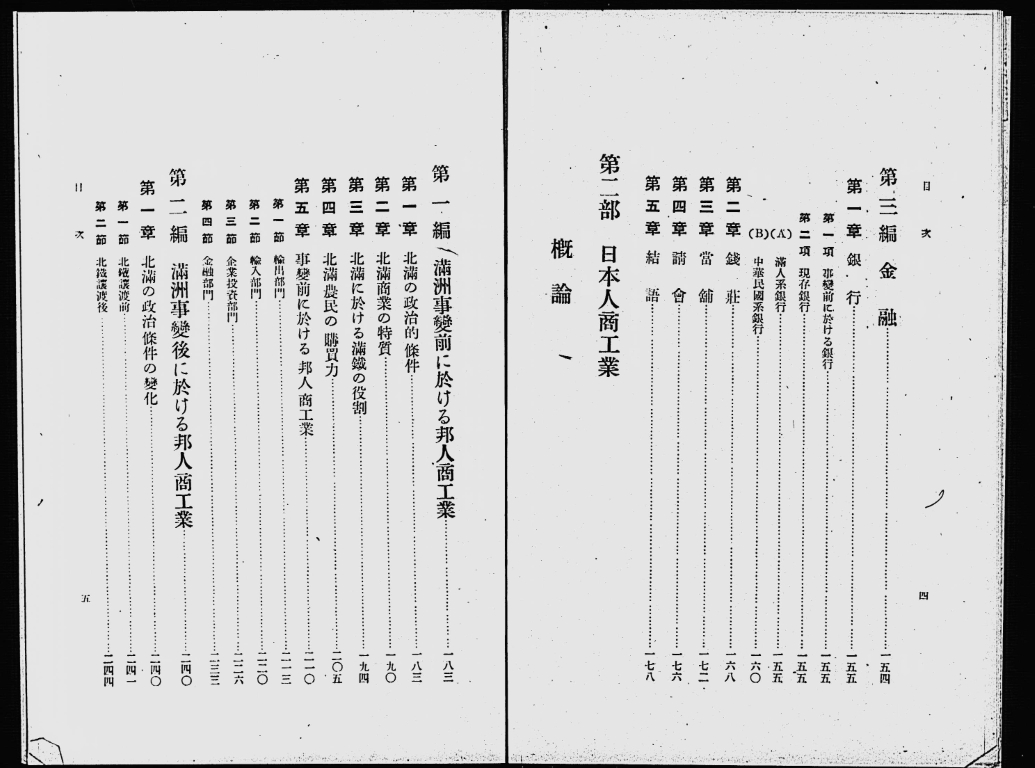 目次
四
第三編 金融……一五四
第一章 銀行……一五五
第一項 事變前に於ける銀行……一五五
第二項 現存銀行……一五五
(A) 滿人系銀行……一五五
(B) 中華民國系銀行……一六〇
第二章 錢莊……一六八
第三章 當舖……一七二
第四章 請會……一七六
第五章 結語……一七八
第二部 日本人商工業
概論
第一編 滿洲事變前に於ける邦人商工業……一八三
第一章 北滿の政治的條件……一八三
第二章 北滿商業の特質……一九〇
第三章 北滿に於ける滿鐵の役割……一九四
第四章 北滿農民の購買力……二〇五
第五章 事變前に於ける邦人商工業……二一〇
第一節 輸出部門……二一三
第二節 輸入部門……二二〇
第三節 企業投資部門……二二六
第四節 金融部門……二三三
第二編 滿洲事變後に於ける邦人商工業……二四〇
第一章 北滿の政治條件の變化……二四〇
第一節 北鐵讓渡前……二四一
第二節 北鐵讓渡後……二四四
目次
五